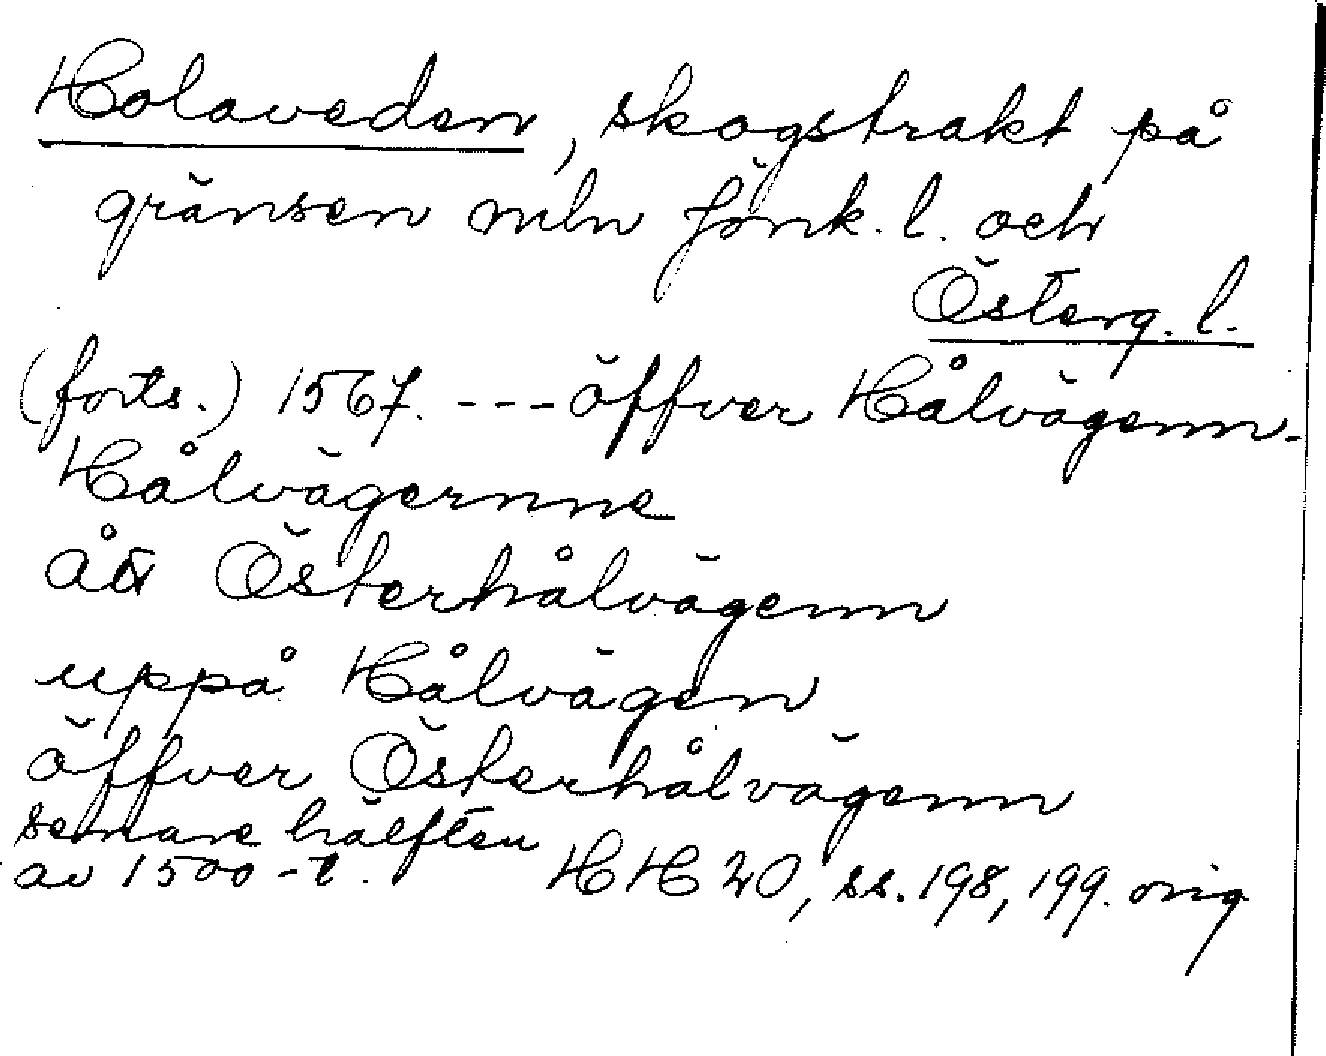 Holaveden, skogstrakt på
gränsen mln Jönk. l. och
Österg. l.
(forts.) 1567. --- öffver Hålvägenn.
Hålvägernne
åt Österhålvägenn
uppå Hålvägen
öffver Österhålvägenn
senare hälften
av 1500-t. HH 20, ss. 198, 199. orig